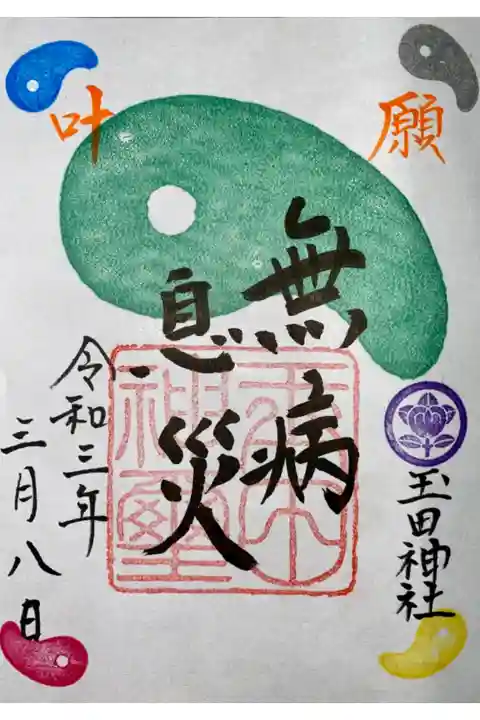 願
叶
無病
息災
玉田神社
令和三年
三月八日